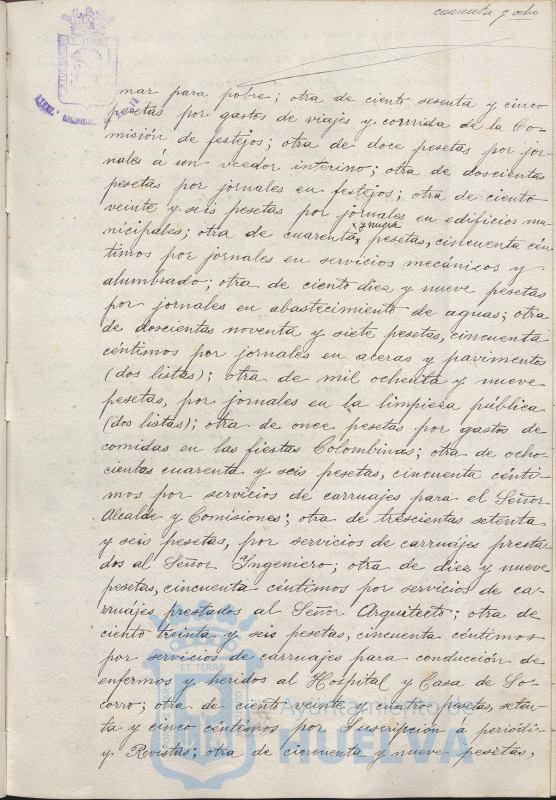 cincuenta y ocho
mar para pobre; otra de ciento sesenta y cinco
pesetas por gastos de viajes y corrrida de la Co-
misión de festejos; otra de doce pesetas por jor-
nales á un veedor interino; otra de doscientas
pesetas por jornales en festejos; otra de ciento
veinte y seis pesetas por jornales en edificios mu-
nicipales; otra de cuarenta y nueve pesetas, cincuenta cén-
timos por jornales en servicios mecánicos y
alumbrado; otra de ciento diez y nueve pesetas
por jornales en abastecimiento de aguas; otra
de doscientas noventa y siete pesetas, cincuenta
céntimos por jornales en aceras y pavimento
(dos listas); otra de mil ochenta y nueve
pesetas, por jornales en la limpieza pública
(dos listas); otra de once pesetas por gastos de
comidas en las fiestas Colombinas; otra de ocho-
cientas cuarenta y seis pesetas, cincuenta cénti-
mos por servicios de carruajes para el Señor
Alcalde y Comisiones; otra de trescientas setenta
y seis pesetas, por servicios de carruajes presta-
dos al Señor Ingeniero; otra de diez y nueve
pesetas, cincuenta céntimos por servicios de ca-
rruajes prestados al Señor Arquitecto; otra de
ciento treinta y seis pesetas, cincuenta céntimos
por servicios de carruajes para conducción de
enfermos y heridos al Hospital y Casa de So-
corro; otra de ciento veinte y cuatro pesetas, seten-
ta y cinco céntimos por Suscripción á periódi-
y Revistas; otra de cincuenta y nueve pesetas,
ET TERRÆ
Ayuntamiento de
HUELVA